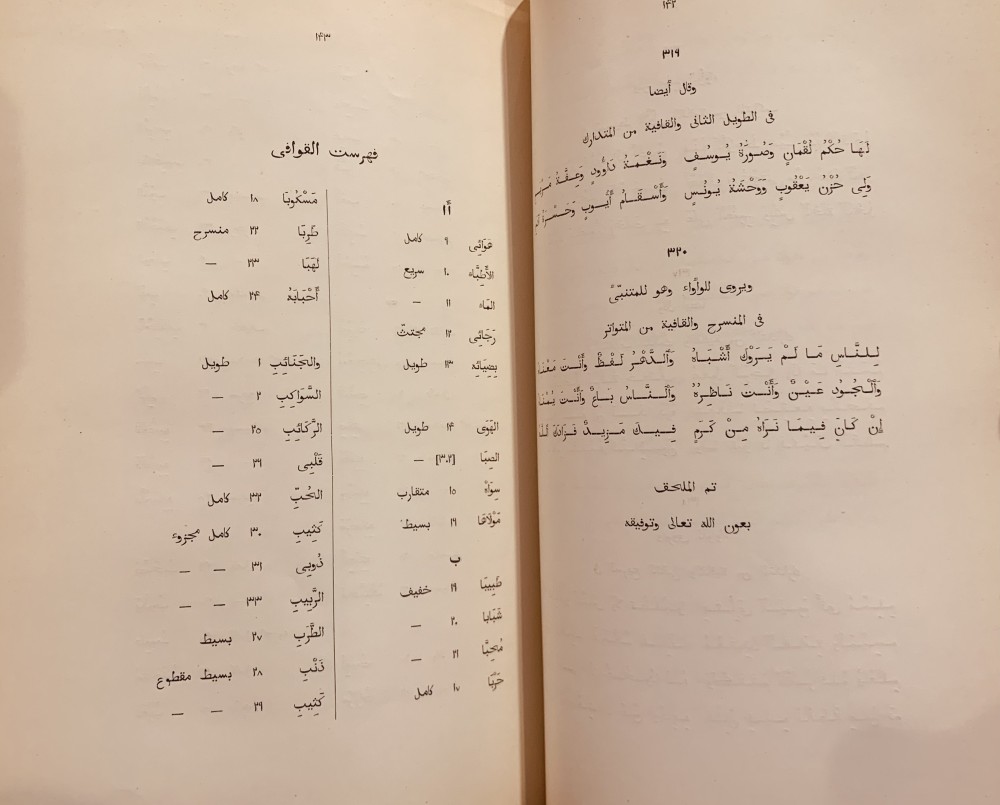 ١٤٢
٣١٩
وقال أيضا
فى الطويل الثانى والقافية من المتدارك
لَهَا حُكْمُ لُقْمَانٍ وَصُورَةُ يُوسُفٍ وَنَغْمَةُ دَاوُودٍ وَعِفَّةُ
وَلِى حُزْنُ يَعْقُوبٍ وَوَحْشَةُ يُونُسٍ وَأَسْقَامُ أَيُّوبٍ
٣٢٠
ويروى للوأواء وهو للمتنبّئ
فى المنسرح والقافية من المتواتر
لِلنَّاسِ مَا لَمْ يَرَوْكَ أَشْبَاهُ وَٱلدَّهْرُ لَفْظٌ وَأَنْتَ
وَٱلْجُودُ عَيْنٌ وَأَنْتَ نَاظِرُهُ وَٱلنَّاسُ بَاعٌ وَأَنْتَ
إِنْ كَانَ فِيمَا نَرَاهُ مِنْ كَرَمٍ فِيكَ مَزِيدٌ فَزَادَكَ
تم الملحق
بعون الله تعالى وتوفيقه
١٤٣
فهرست القوافى
أا
٩ كامل
١٠ سريع
الماء ١١ —
رَجَائِى ١٢ مجتثّ
بِضِيَائِهِ ١٣ طويل
الهَوَى ١٤ طويل
الصِّبَا [٣٠٢] —
سِوَاهُ ١٥ متقارب
مَوْلَاهَا ١٦ بسيط
ب
طَبِيبَا ١٩ خفيف
شَبَابَا ٢٠ —
مُحِبَّا ٢١ —
١٧ كامل
مَسْكُوبَا ١٨ كامل
طَرِبَا ٢٢ منسرح
لَهَبَا ٢٣ —
أَحْبَابَهُ ٢٤ كامل
والجَنَائِبِ ١ طويل
السَّوَاكِبِ ٢ —
الرَّكَائِبِ ٢٥ —
قَلْبِى ٢٦ —
الحُبِّ ٣٢ كامل
كَثِيبِ ٣٠ كامل مجزوء
ذُوبِى ٣١ — —
الرَّبِيبِ ٣٣ — —
الطَّرَبِ ٢٧ بسيط
ذَنْبِ ٢٨ بسيط مقطوع
كَثِيبِ ٢٩ — —